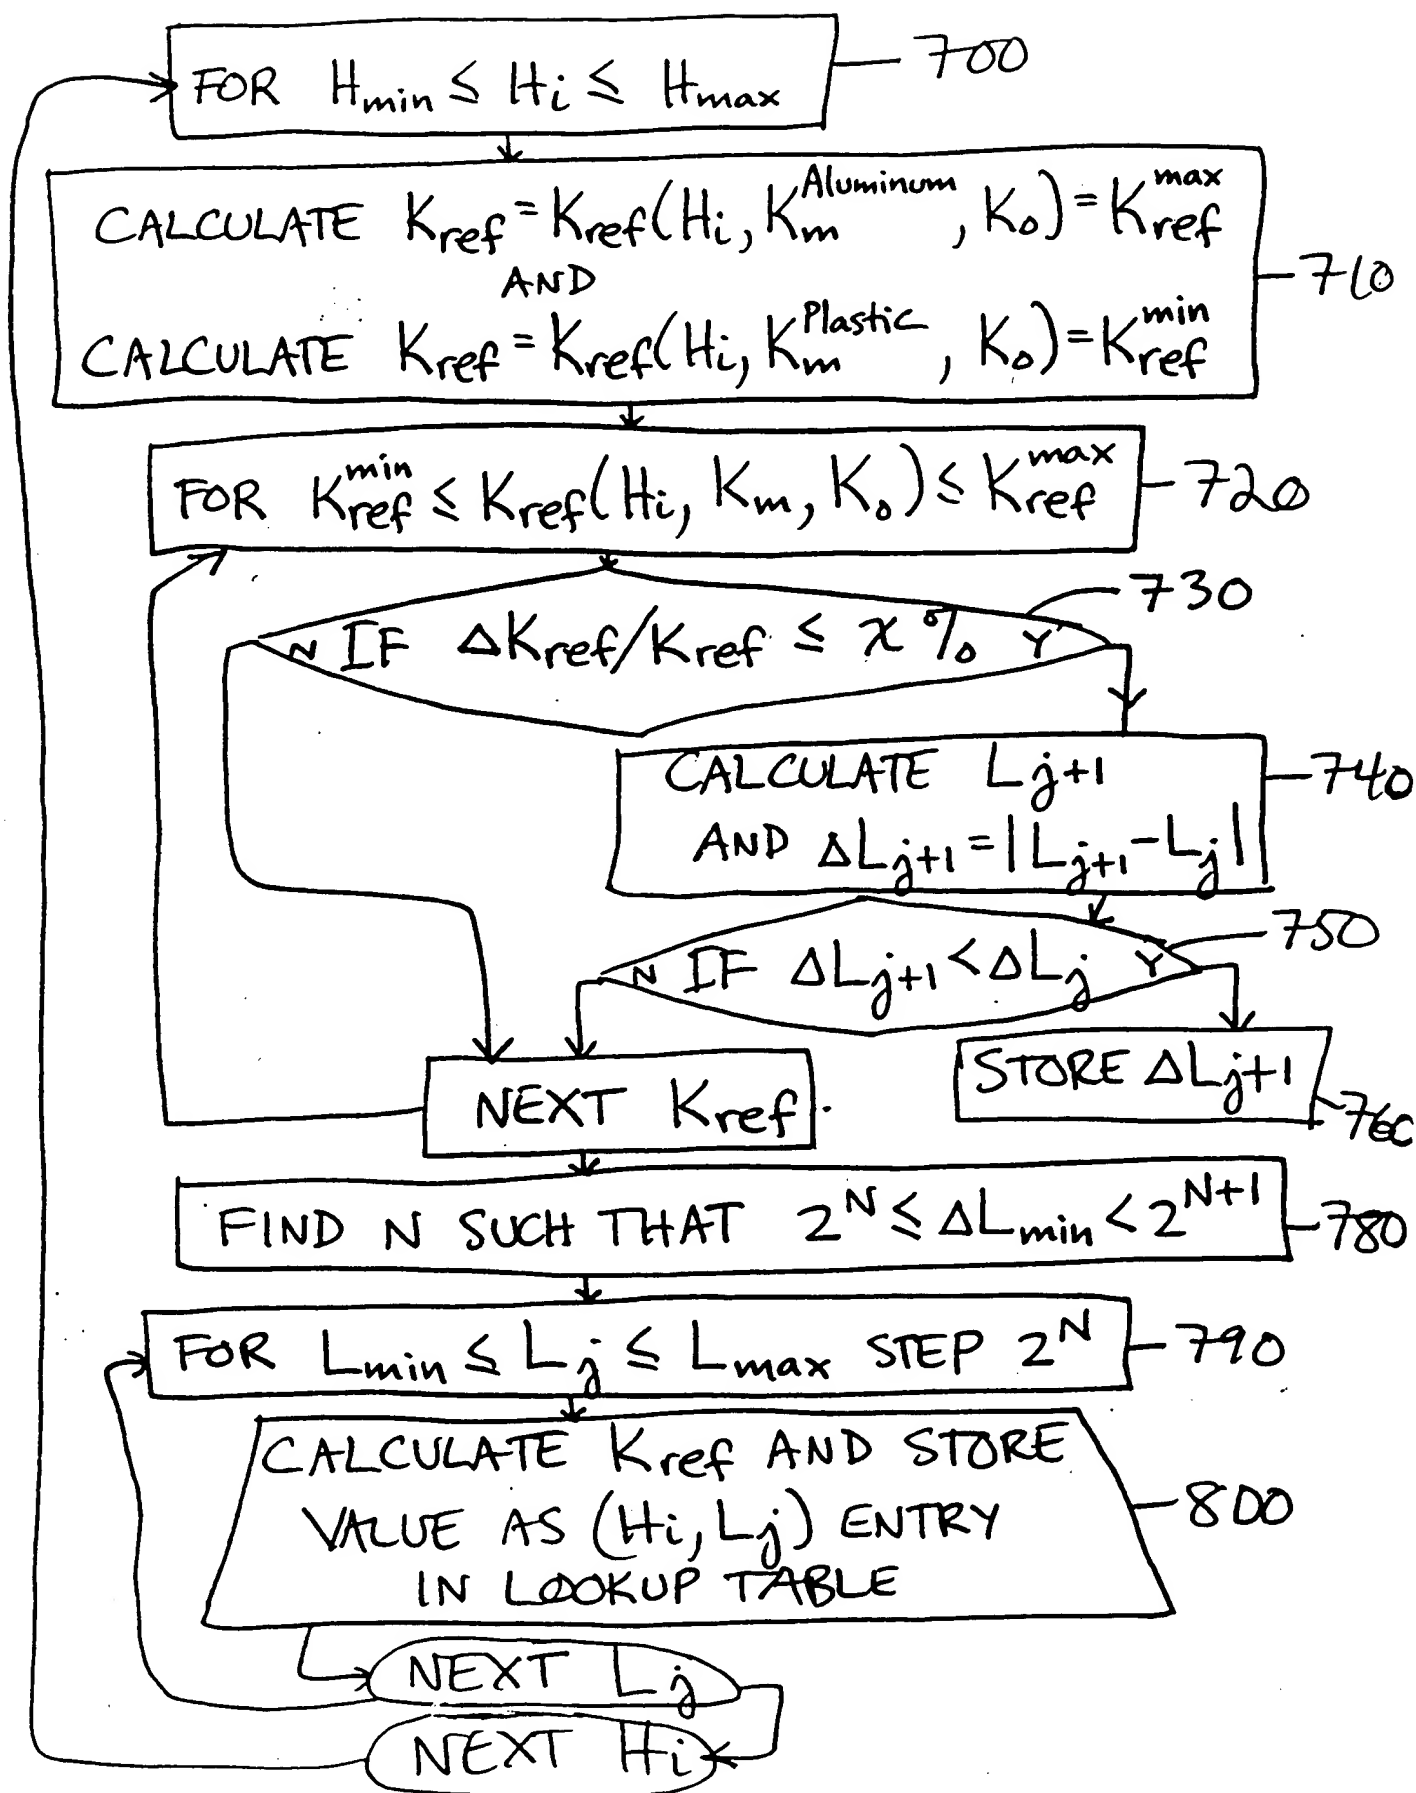 FOR Hmin ≤ Hi ≤ Hmax 700
CALCULATE Kref = Kref(Hi, Km^Aluminum, Ko) = Kref^max
AND
710
CALCULATE Kref = Kref(Hi, Km^Plastic, Ko) = Kref^min
FOR Kref^min ≤ Kref(Hi, Km, Ko) ≤ Kref^max 720
730
N IF ΔKref/Kref ≤ x % Y
CALCULATE Lj+1 740
AND ΔLj+1 = |Lj+1 - Lj|
750
N IF ΔLj+1 < ΔLj Y
STORE ΔLj+1
NEXT Kref 760
FIND N SUCH THAT 2^N ≤ ΔLmin < 2^N+1 780
FOR Lmin ≤ Lj ≤ Lmax STEP 2^N 790
CALCULATE Kref AND STORE
VALUE AS (Hi, Lj) ENTRY 800
IN LOOKUP TABLE
NEXT Lj
NEXT Hi